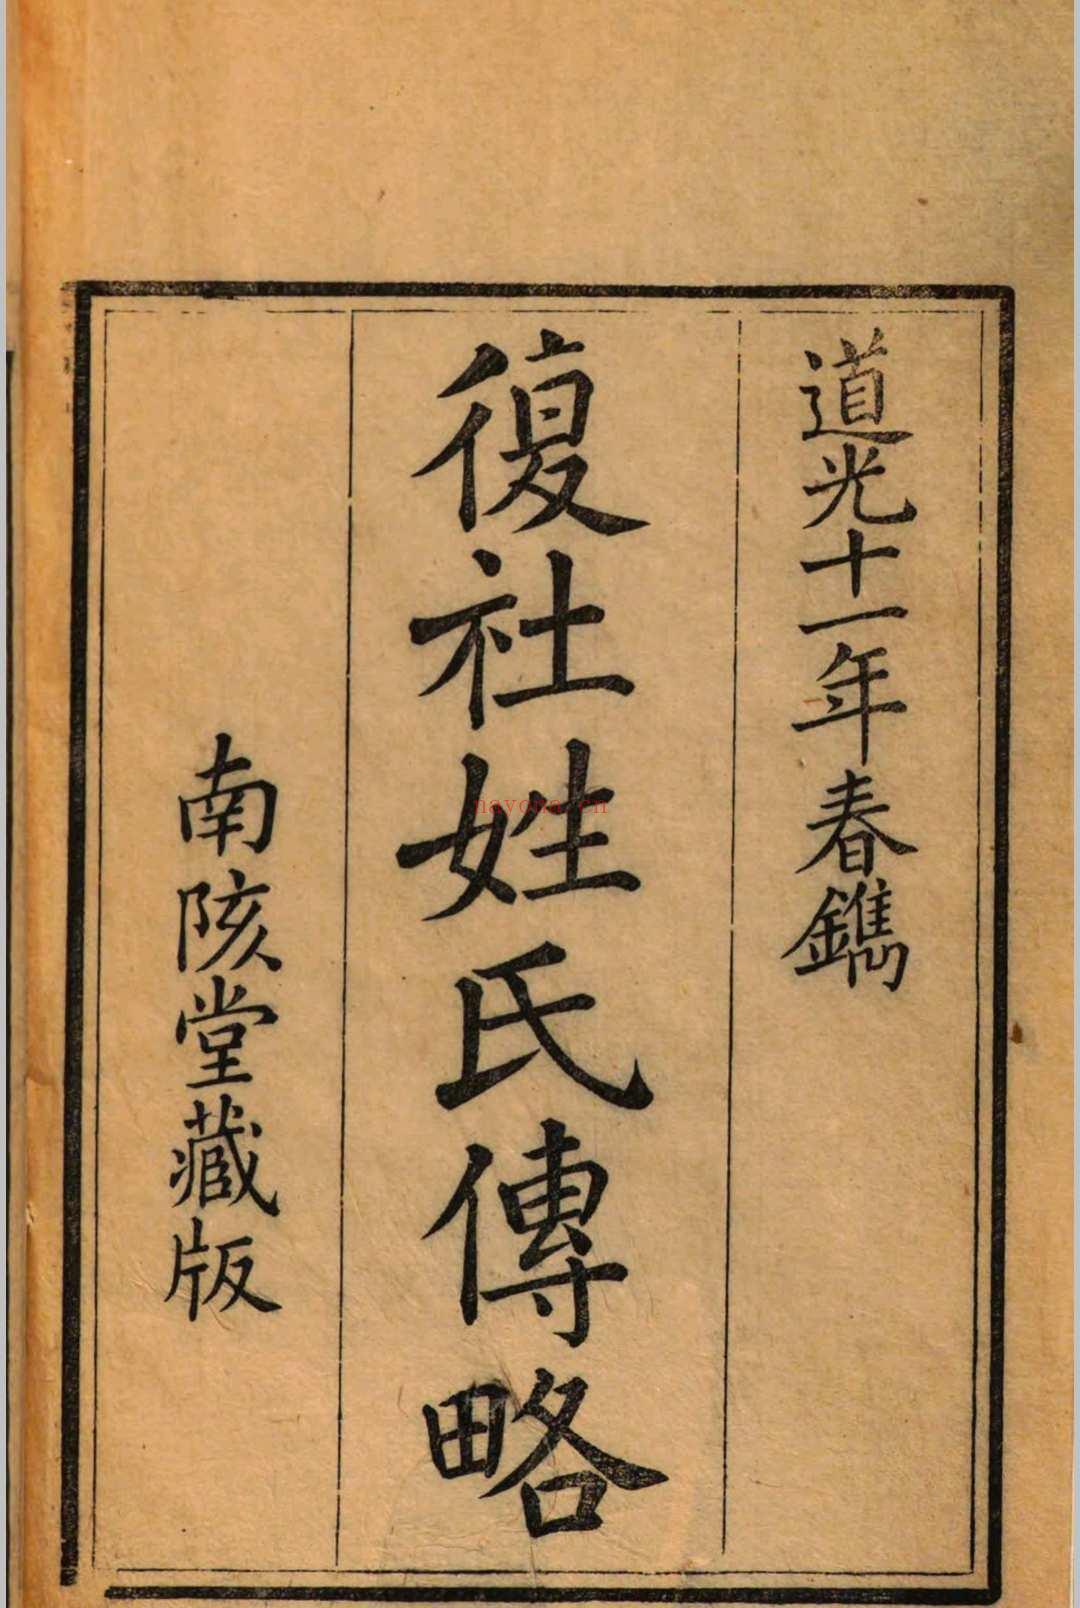 道光十一年春鐫
復社姓氏傳略
南陔堂藏版
nayona.cn